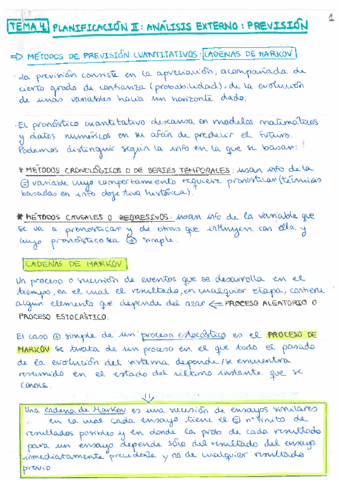 1
TEMA 4. PLANIFICACIÓN II: ANÁLISIS EXTERNO: PREVISIÓN
⇒ MÉTODOS DE PREVISIÓN CUANTITATIVOS: CADENAS DE MARKOV
· La previsión consiste en la apreciación, acompañada de
cierto grado de confianza (probabilidad), de la evolución
de unas variables hacia un horizonte dado.
· El pronóstico cuantitativo descansa en modelos matemáticos
y datos numéricos en su afán de predecir el futuro.
Podemos distinguir según la info en la que se basan:
* MÉTODOS CRONOLÓGICOS O DE SERIES TEMPORALES: usan info de la
variable cuyo comportamiento requiere pronosticar (técnicas
basadas en info objetiva histórica).
* MÉTODOS CAUSALES O REGRESIVOS: usan info de la variable que
se va a pronosticar y de otras que influyen con ella y
cuyo pronóstico sea ⊕ simple.
CADENAS DE MARKOV
Un proceso o sucesión de eventos que se desarrolla en el
tiempo, en el cual el resultado, en cualquier etapa, contiene
algún elemento que depende del azar ⇐ PROCESO ALEATORIO O
PROCESO ESTOCÁSTICO.
El caso ⊕ simple de un proceso estocástico es el PROCESO DE
MARKOV se trata de un proceso en el que todo el pasado
de la evolución del sistema depende/se encuentra
resumido en el estado del último instante que se
conoce.
Una cadena de Markov es una sucesión de ensayos similares
en la cual cada ensayo tiene el nº finito de
resultados posibles y en donde la prob de cada resultado
para un ensayo depende sólo del resultado del ensayo
inmediatamente precedente y no de cualquier resultado
previo